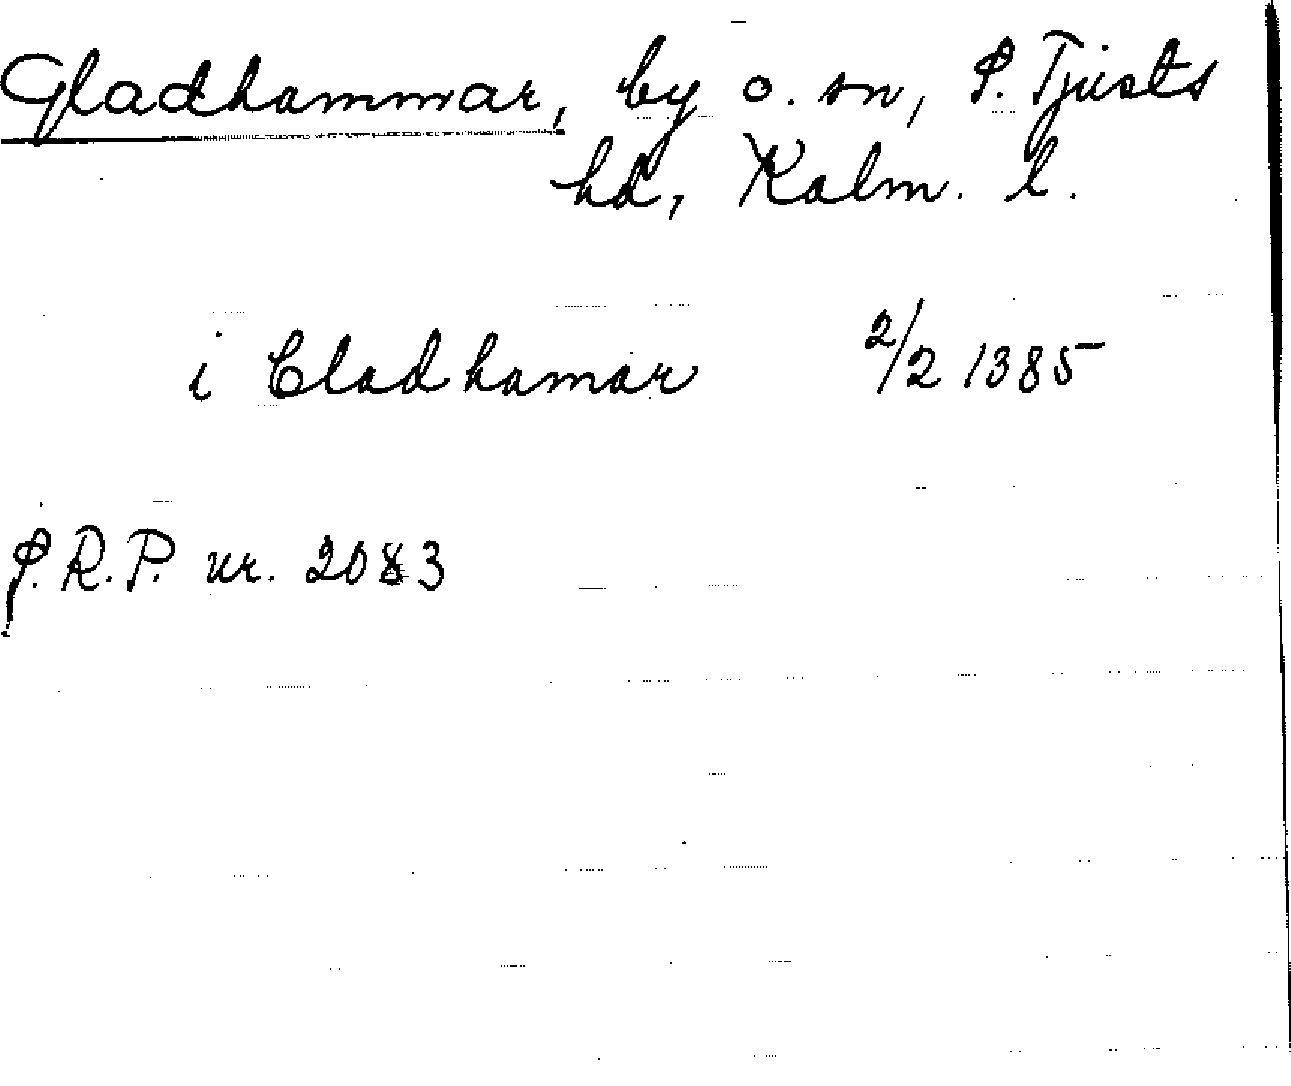 Gladhammar, by o. sn, S. Tjusts
hd, Kalm. l.
i Cladhamar 2/2 1385
S.R.P. nr. 2083